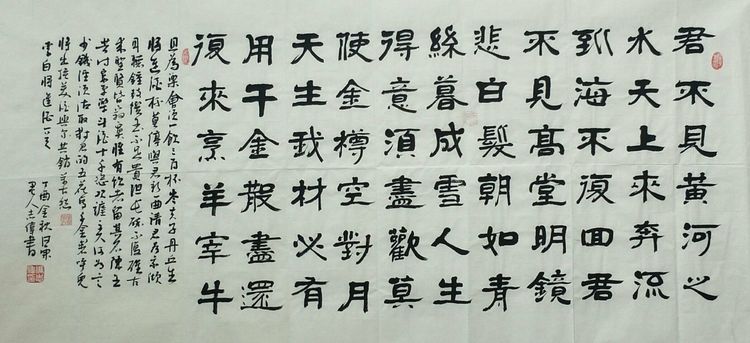 君不見黃河之
水天上來奔流
到海不復回君
不見高堂明鏡
悲白髮朝如青
絲暮成雪人生
得意須盡歡莫
使金樽空對月
天生我材必有
用千金散盡還
復來烹羊宰牛
且為樂會須一飲三百杯岑夫子丹丘生
將進酒杯莫停與君歌一曲請君為我傾
耳聽鐘鼓饌玉不足貴但醉不醒古
來聖賢皆寂寞惟有飲者留其名陳王
昔時宴平樂斗酒十千恣歡謔主人何為言
少錢徑須沽取對君酌五花馬千金裘呼兒
將出換美酒與爾共銷萬古愁
李白將進酒一首
丁酉金秋
人志偉書